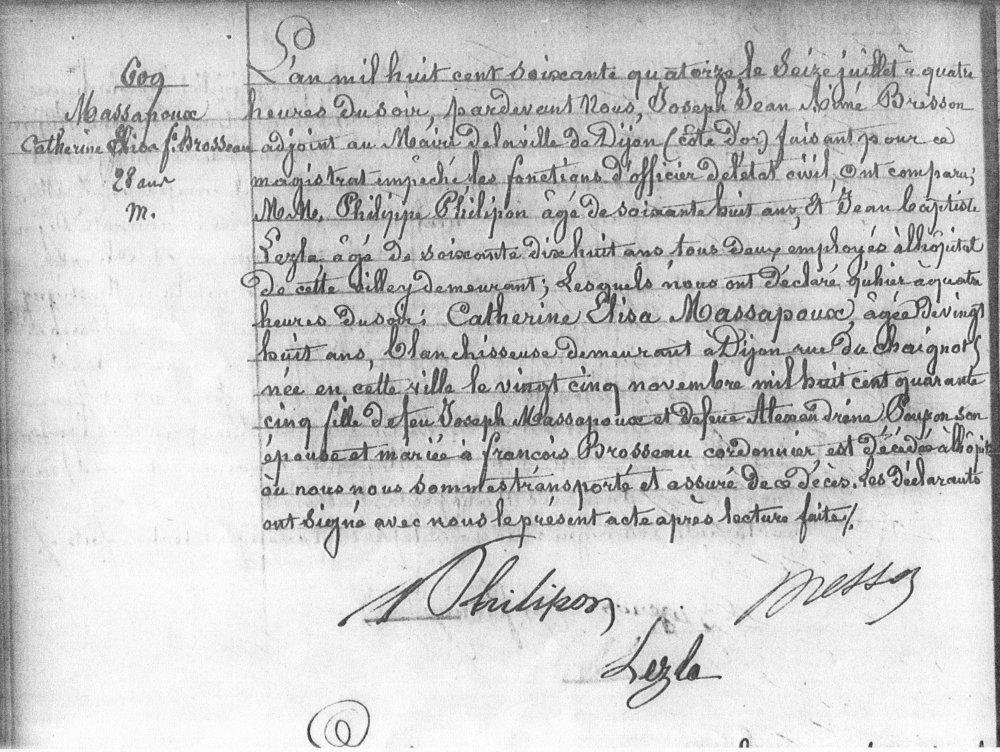 609
Massapoux
Catherine Elisa f. Brosseau
28 ans
m.
L'an mil huit cent soixante quatorze le Seize juillet à quatre
heures du soir, pardevant Nous, Joseph Jean Aimé Bresson
adjoint au Maire de la ville de Dijon (côte d'or) faisant pour ce
magistrat empêché les fonctions d'officier de l'état civil, Ont comparu;
MM. Philippe Philipon âgé de soixante huit ans, Et Jean Baptiste
Lezla âgé de soixante dix huit ans tous deux employés à l'hôpital
de cette ville y demeurant; Lesquels nous ont déclaré qu'hier à quatre
heures du soir; Catherine Elisa Massapoux, âgée de vingt
huit ans, blanchisseuse demeurant à Dijon rue du Chaignot
née en cette ville le vingt cinq novembre mil huit cent quarante
cinq fille de feu Joseph Massapoux et de feue Alexandrine Poupon son
épouse et mariée à françois Brosseau cordonnier est décédée à l'hôpital
où nous nous sommes transporté et assuré de ce décès. Les déclarants
ont signé avec nous le présent acte après lecture faite /.
Philipon
Bresson
Lezla